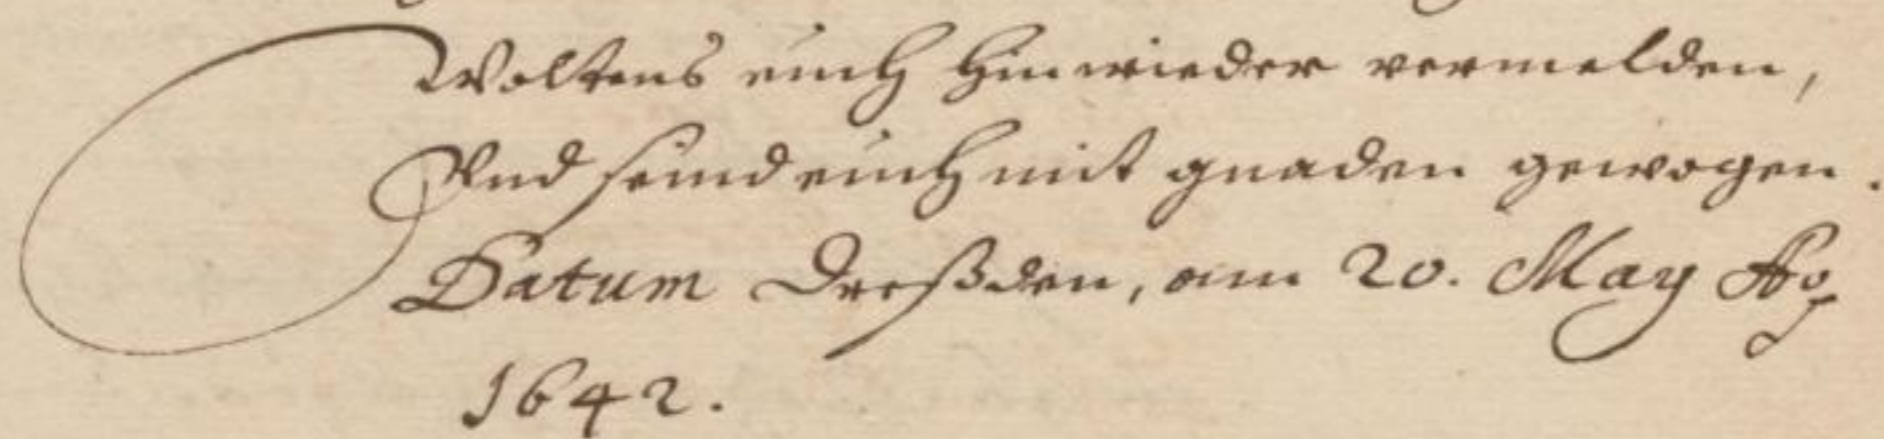 Woltens euch hinwieder vermelden,
Vnd seind euch mit gnaden gewogen.
Datum Dreßden, am 20. May Ao
1642.